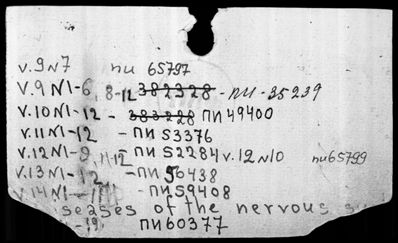 v.9N7 пи 65797
v.9N1-6, 8-12 382328 - пи - 35239
v.10N1-12 - 383228 ПИ 49400
v.11N1-12 - ПИ 53376
v.12N1-9, 11-12 ПИ 52284 v.12N10 пи65799
v.13N1-12 - ПИ 56438
v.14N1- - ПИ 59408
seases of the nervous
-12 ПИ60377